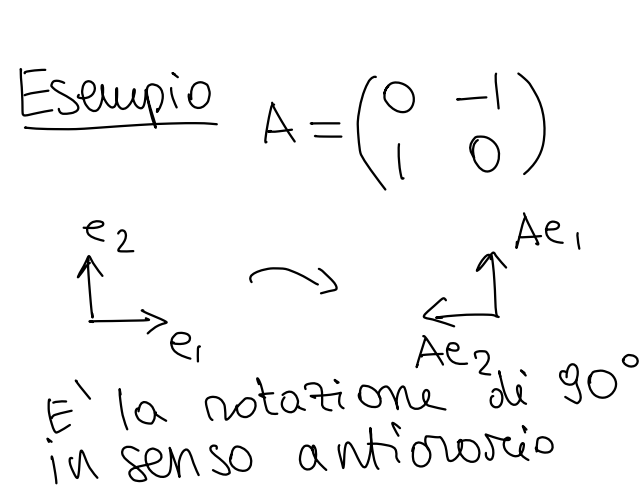 Esempio A = ( 0 -1
1 0 )
e2 Ae1
e1 Ae2
E` la rotazione di 90°
in senso antiorario